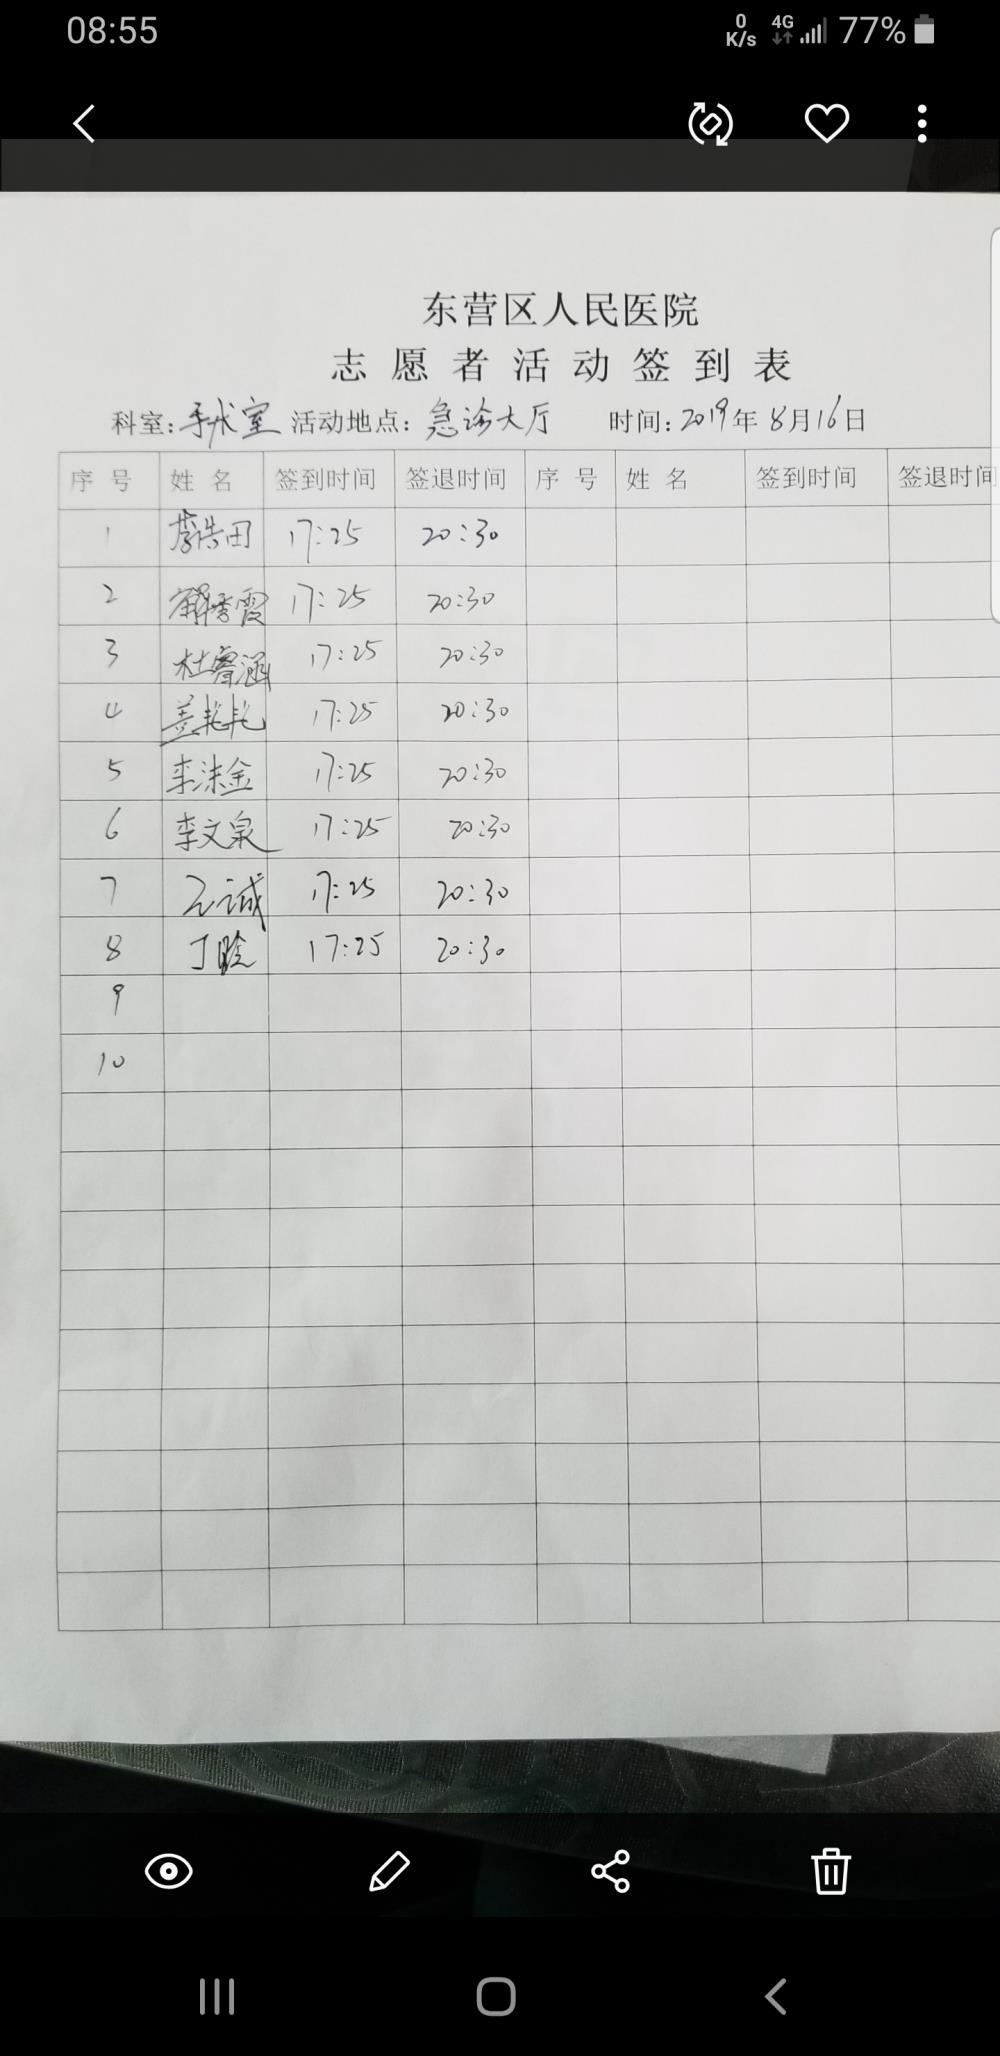 08:55
0 K/s 4G 77%
东营区人民医院
志愿者活动签到表
科室:手术室 活动地点:急诊大厅 时间:2019年8月16日
序号 姓名 签到时间 签退时间 序号 姓名 签到时间 签退时间
1 李浩田 17:25 20:30
2 解秀霞 17:25 20:30
3 杜睿涵 17:25 20:30
4 盖艳艳 17:25 20:30
5 李沫金 17:25 20:30
6 李文泉 17:25 20:30
7 17:25 20:30
8 丁晗 17:25 20:30
9
10